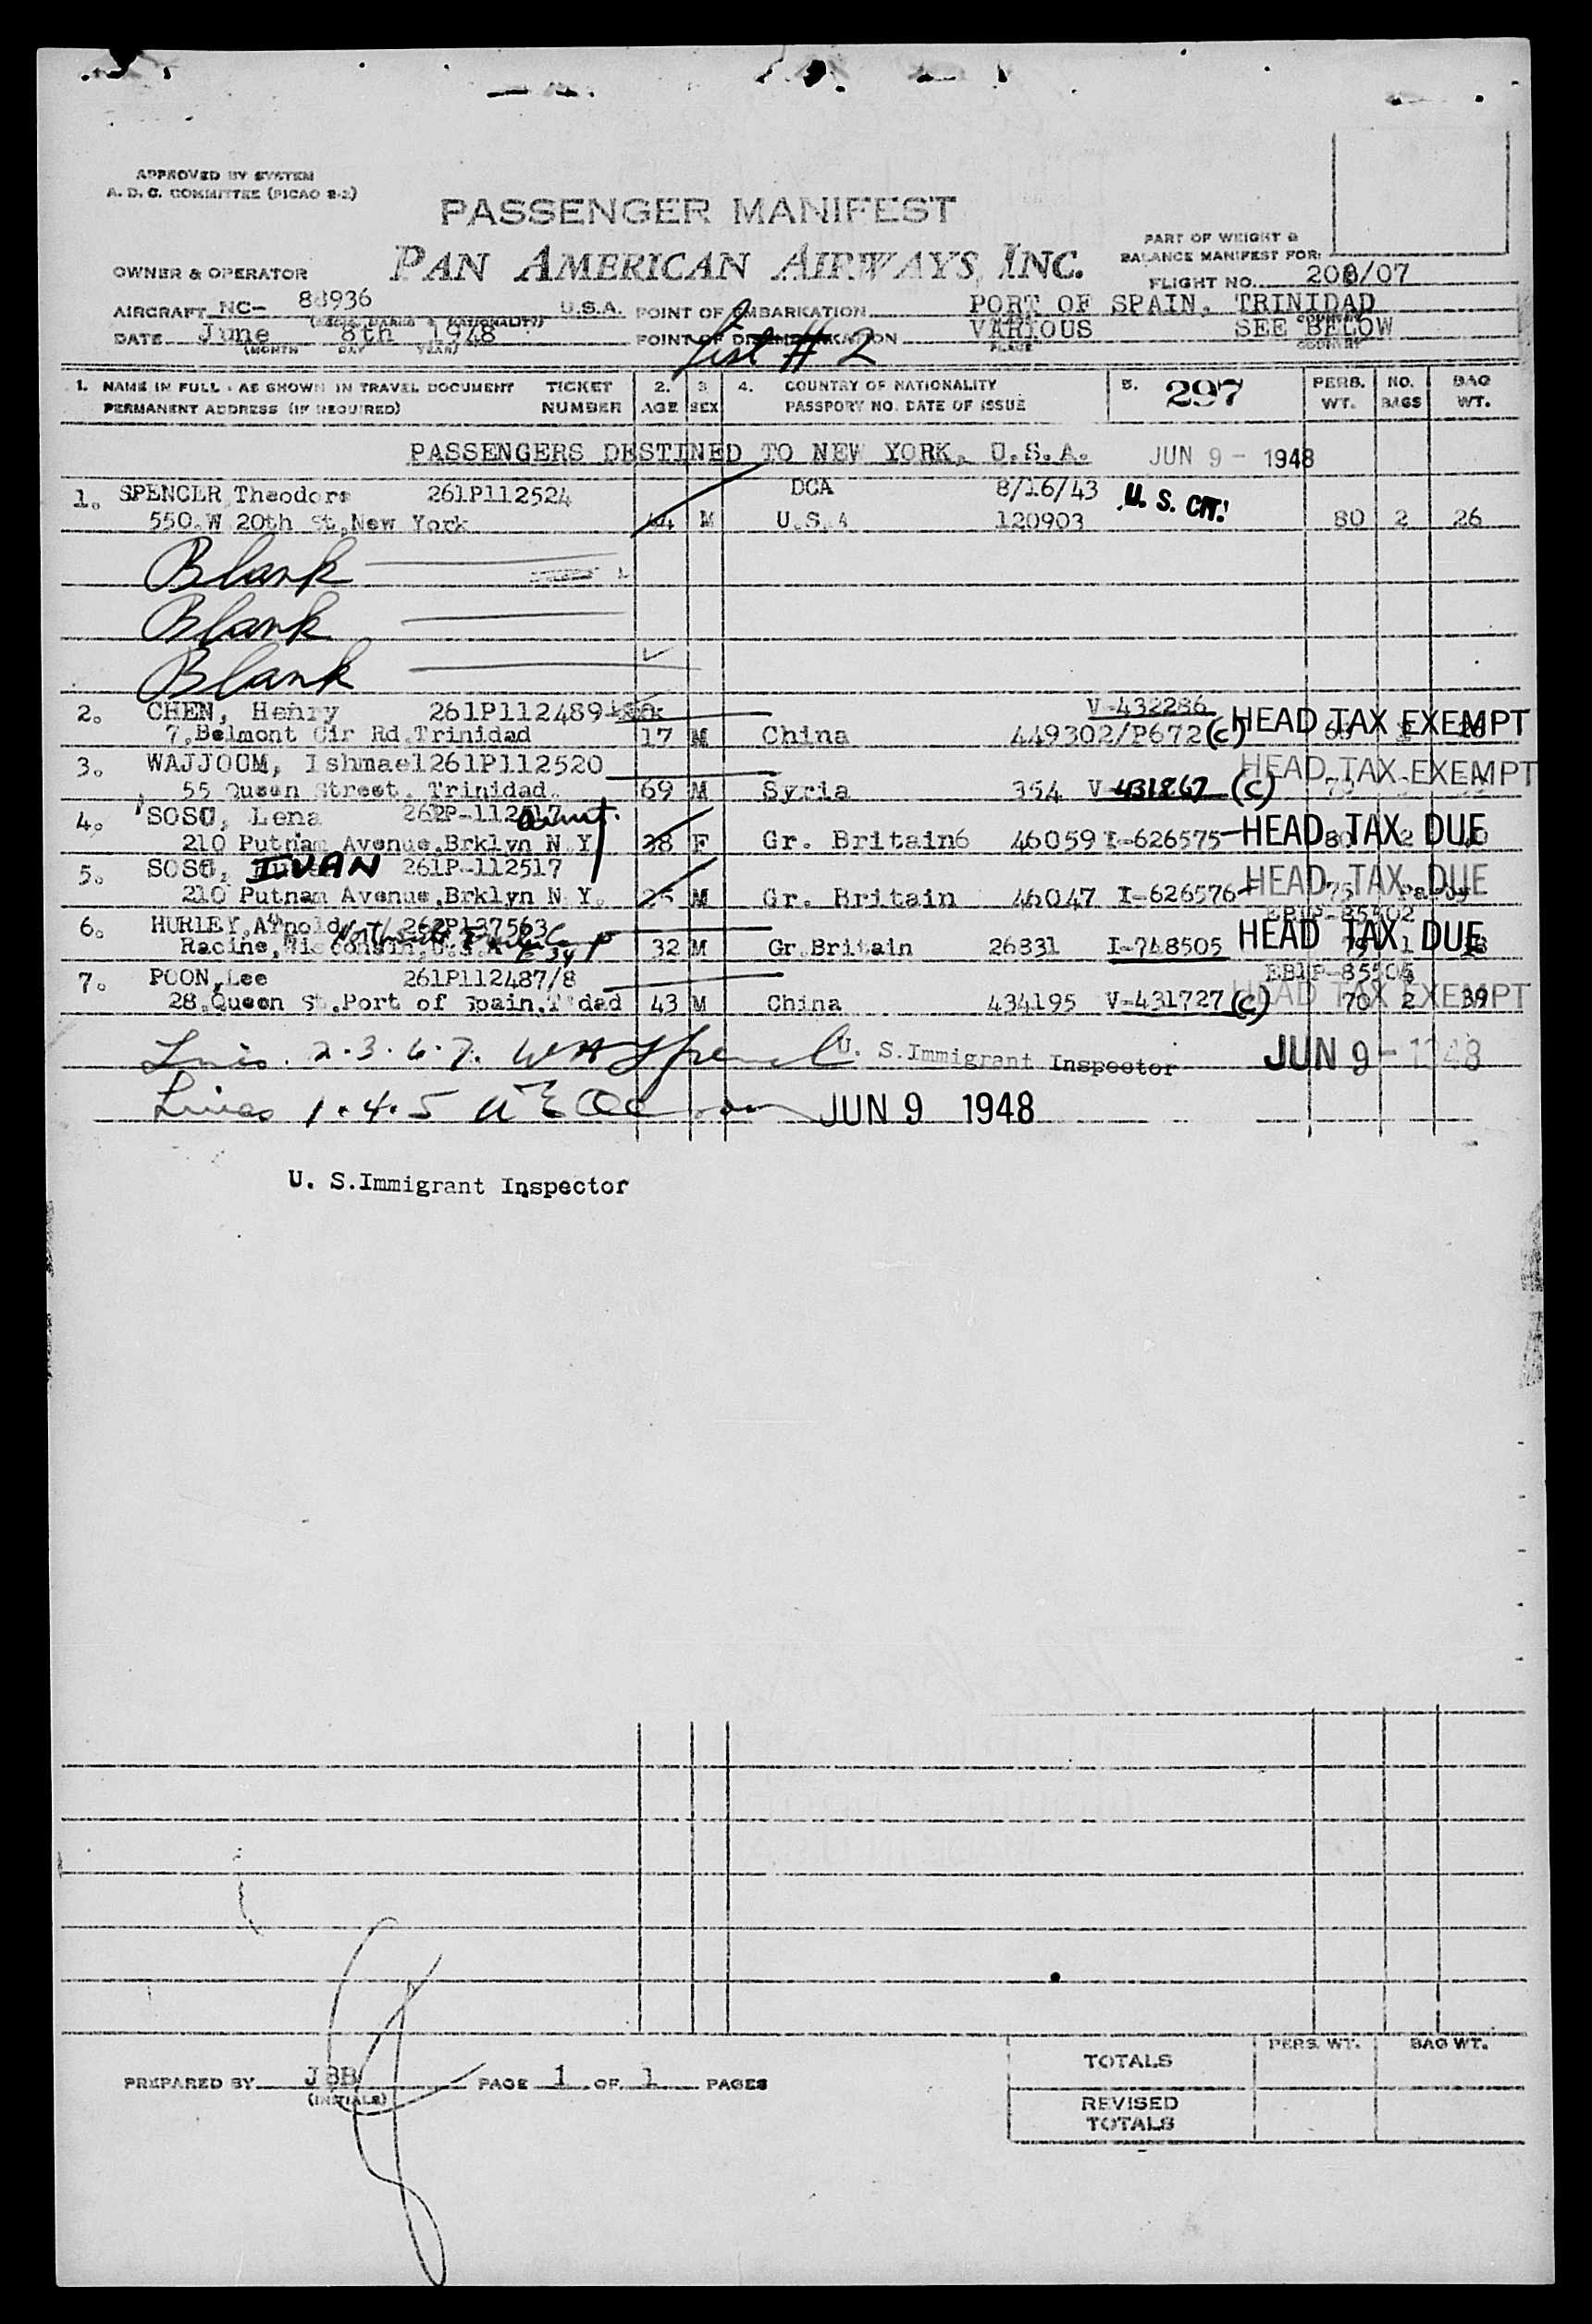 APPROVED BY SYSTEM
A. D. C. COMMITTEE (PICAO 2-2)
PASSENGER MANIFEST
PAN AMERICAN AIRWAYS, INC.
PART OF WEIGHT &
BALANCE MANIFEST FOR:
OWNER & OPERATOR
FLIGHT NO. 208/07
AIRCRAFT NC- 88936 U.S.A. POINT OF EMBARKATION PORT OF SPAIN, TRINIDAD
DATE June 8th 1948 POINT OF DISEMBARKATION VARIOUS SEE BELOW
(MONTH DAY YEAR) PLACE COUNTRY
List # 2
1. NAME IN FULL - AS SHOWN IN TRAVEL DOCUMENT TICKET 2. 3 4. COUNTRY OF NATIONALITY 5. 297 PERS. NO. BAG
PERMANENT ADDRESS (IF REQUIRED) NUMBER AGE SEX PASSPORT NO. DATE OF ISSUE WT. BAGS WT.
PASSENGERS DESTINED TO NEW YORK, U.S.A. JUN 9 - 1948
1. SPENCER Theodore 261P112524 DCA 8/16/43 U. S. CIT.
550.W 20th St,New York 44 M U.S.A 120903 80 2 26
Blank
Blank
Blank
2. CHEN, Henry 261P112489 V-432286
7,Belmont Cir Rd,Trinidad 17 M China 449302/P672 (C) HEAD TAX EXEMPT
3. WAJJOOM, Ishmael 261P112520 HEAD TAX EXEMPT
55 Queen Street, Trinidad. 69 M Syria 354 V-431867 (C)
4. SOSU, Lena 261P-112517 Aunt.
210 Putnam Avenue,Brklyn N Y 38 F Gr. Britain 46059 I-626575 HEAD TAX DUE 80 2
5. SOSU, IVAN 261P-112517
210 Putnam Avenue,Brklyn N Y. M Gr. Britain 46047 I-626576 HEAD TAX DUE 75
6. HURLEY,Arnold 262P137563
Racine,Wisconsin,U.S.A 32 M Gr.Britain 26831 I-748505 HEAD TAX DUE 1
7. POON,Lee 261P112487/8
28,Queen St.Port of Spain.T'dad 43 M China 434195 V-431727 (C) HEAD TAX EXEMPT 70 2 39
Lines. 2.3.6.7. U. S.Immigrant Inspector JUN 9 - 1948
Lines 1.4.5 JUN 9 1948
U. S.Immigrant Inspector
TOTALS PERS. WT. BAG WT.
PREPARED BY JBB PAGE 1 OF 1 PAGES
(INITIALS)
REVISED
TOTALS